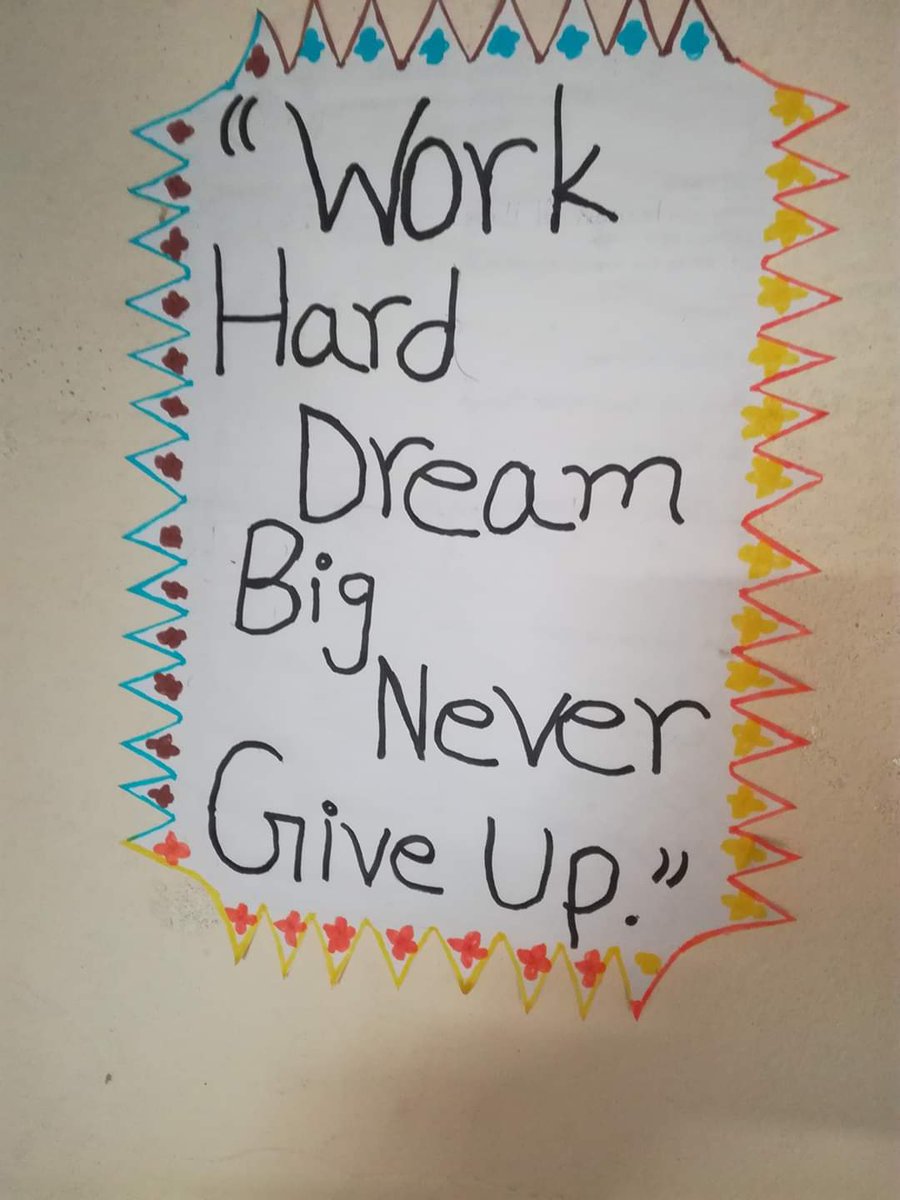 “Work
Hard
Dream
Big
Never
Give Up.”